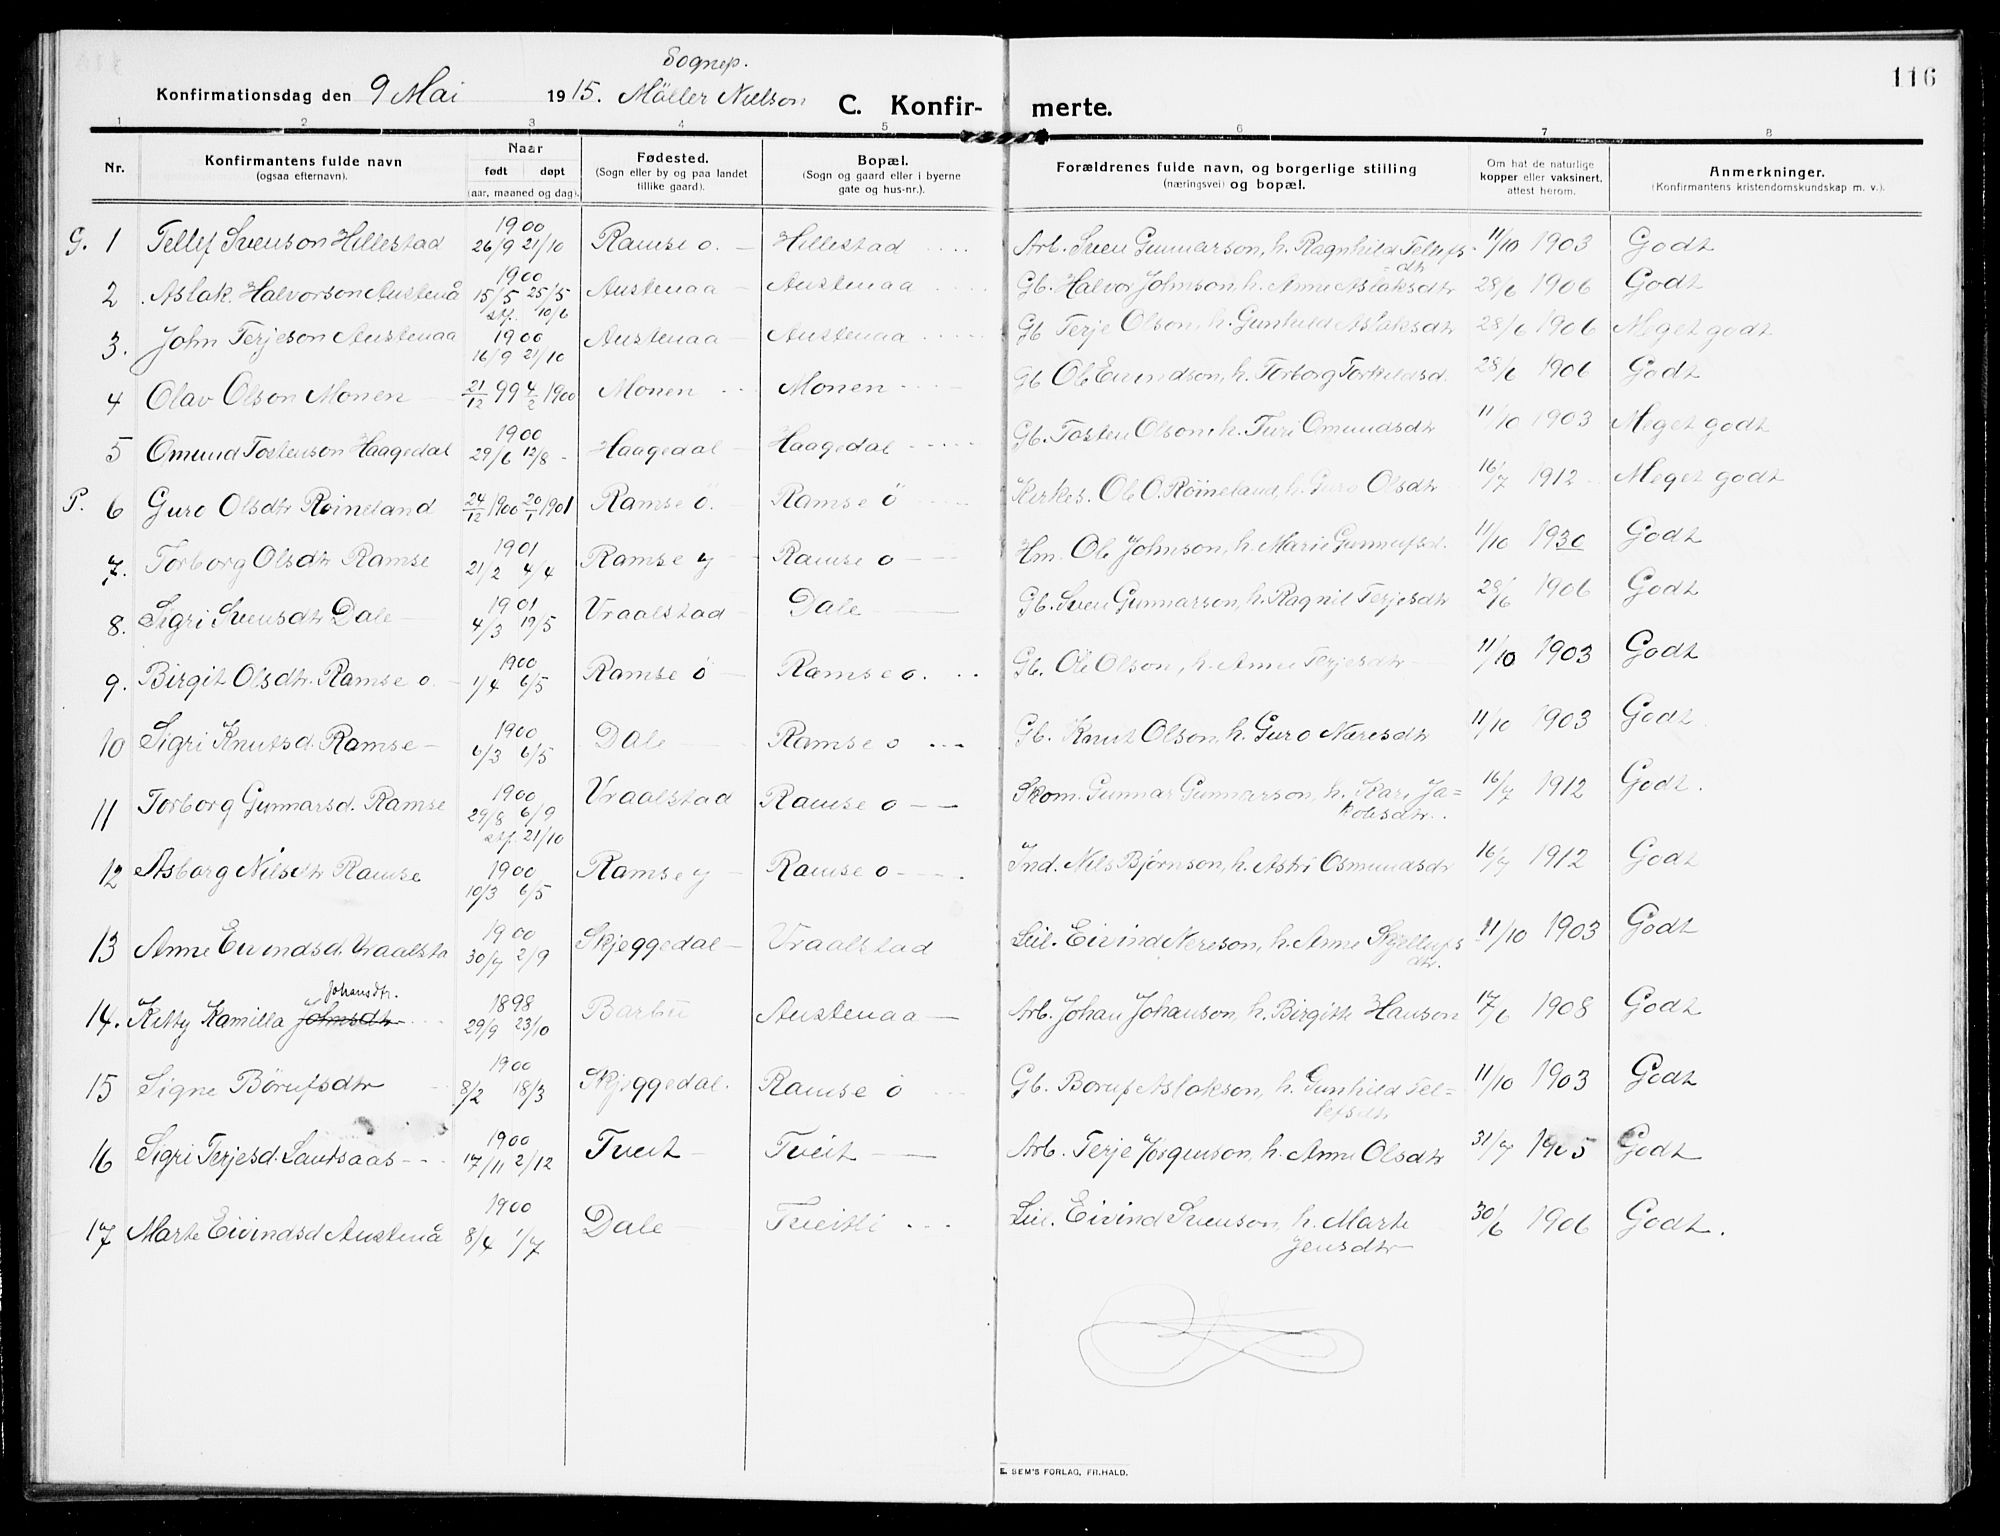 116
Sognep.
Konfirmationsdag den 9 Mai 1915. Möller Nielson C. Konfir- merte.
1 2 3 4 5 6 7 8
Nr. Konfirmantens fulde navn (ogsaa efternavn). Naar født døpt (aar, maaned og dag). Fødested. (Sogn eller by og paa landet tillike gaard). Bopæl. (Sogn og gaard eller i byerne gate og hus-nr.). Forældrenes fulde navn, og borgerlige stilling (næringsvei) og bopæl. Om hat de naturlige kopper eller vaksinert, attest herom. Anmerkninger. (Konfirmantens kristendomskundskap m. v.).
G. 1 Tellef Svenson Hillestad 1900 26/9 21/10 Ramse o. Hillestad Arb. Sven Gunnarson, h. Ragnhild Tellefs=dtr 11/10 1903 Godt
2 Aslak Halvorson Austenå 1900 15/5 25/5 stf. 10/6 Austenaa Austenaa Gb. Halvor Johnson h. Anne Aslaksdtr 28/6 1906 Godt
3. John Terjeson Austenaa 1900 16/9 21/10 Austenaa Austenaa Gb Terje Olson, h. Gunhild Aslaksdtr 28/6 1906 Meget godt
4 Olav Olson Monen 21/12 99 4/2 1900 Monen Monen Gb Ole Eivindson, h. Torborg Torkildsd. 28/6 1906 Godt
5 Omund Tostenson Haagedal 1900 29/6 12/8 Haagedal Haagedal Gb. Tosten Olson, h. Turi Omundsdtr 11/10 1903 Meget godt
P. 6 Guro Olsdtr Røineland 24/12 1900 20/1 1901 Ramse ö. Ramse ö Kirkes. Ole O. Røineland, h. Guro Olsdtr 16/7 1912 Meget godt
7. Torborg Olsdtr Ramse 1901 21/2 4/4 Ramse y Ramse o Hm. Ole Johnson, h. Marie Gunnufsd. 11/10 1930 Godt
8. Sigri Svensdtr Dale 1901 4/3 19/5 Vraalstad Dale Gb. Sven Gunnarson, h. Ragnil Terjesdtr 28/6 1906 Godt
9. Birgit Olsdtr. Ramse o. 1900 1/4 6/5 Ramse ö Ramse o. Gb. Ole Olson, h. Anne Terjesdtr 11/10 1903 Godt
10 Sigri Knutsd. Ramse 1900 6/3 6/5 Dale Ramse o Gb. Knut Olson, h. Guro Næresdtr 11/10 1903 Godt
11 Torborg Gunnarsd. Ramse 1900 29/8 6/9 stf. 21/10 Vraalstad Ramse o Skom. Gunnar Gunnarson, h. Kari Ja=kobsdtr. 16/7 1912 Godt.
12 Asborg Nilsdtr Ramse 1900 10/3 6/5 Ramse y Ramse o Ind. Nils Bjørnson, h. Astri Osmundsdtr 16/7 1912 Godt
13 Anne Eivindsd. Vraalsta 1900 30/7 2/9 Skjeggedal Vraalstad Leil. Eivind Nereson, h. Anne Kjellufsdtr. 11/10 1903 Godt
14. Kitty Kamilla Johnsdtr Johansdtr. 1898 29/9 23/10 Barbu Austenaa Arb. Johan Johanson, h. Birgitte Hanson 17/6 1908 Godt
15 Signe Börufsdtr 1900 8/2 18/3 Skjeggedal. Ramse ö Gb. Boruf Aslakson, h. Gunhild Tel=lefsdtr 11/10 1903 Godt
16 Sigri Terjesd. Lautsaas 1900 17/11 2/12 Tveit Tveit Arb. Terje Jørgenson, h. Anne Olsdtr 31/7 1905 Godt
17 Marte Eivindsd Austenå 1900 8/4 1/7 Dale Tveitli Leil. Eivind Svenson, h. Marte Jensdtr 30/6 1906 Godt.
E. SEM'S FORLAG, FR.HALD.